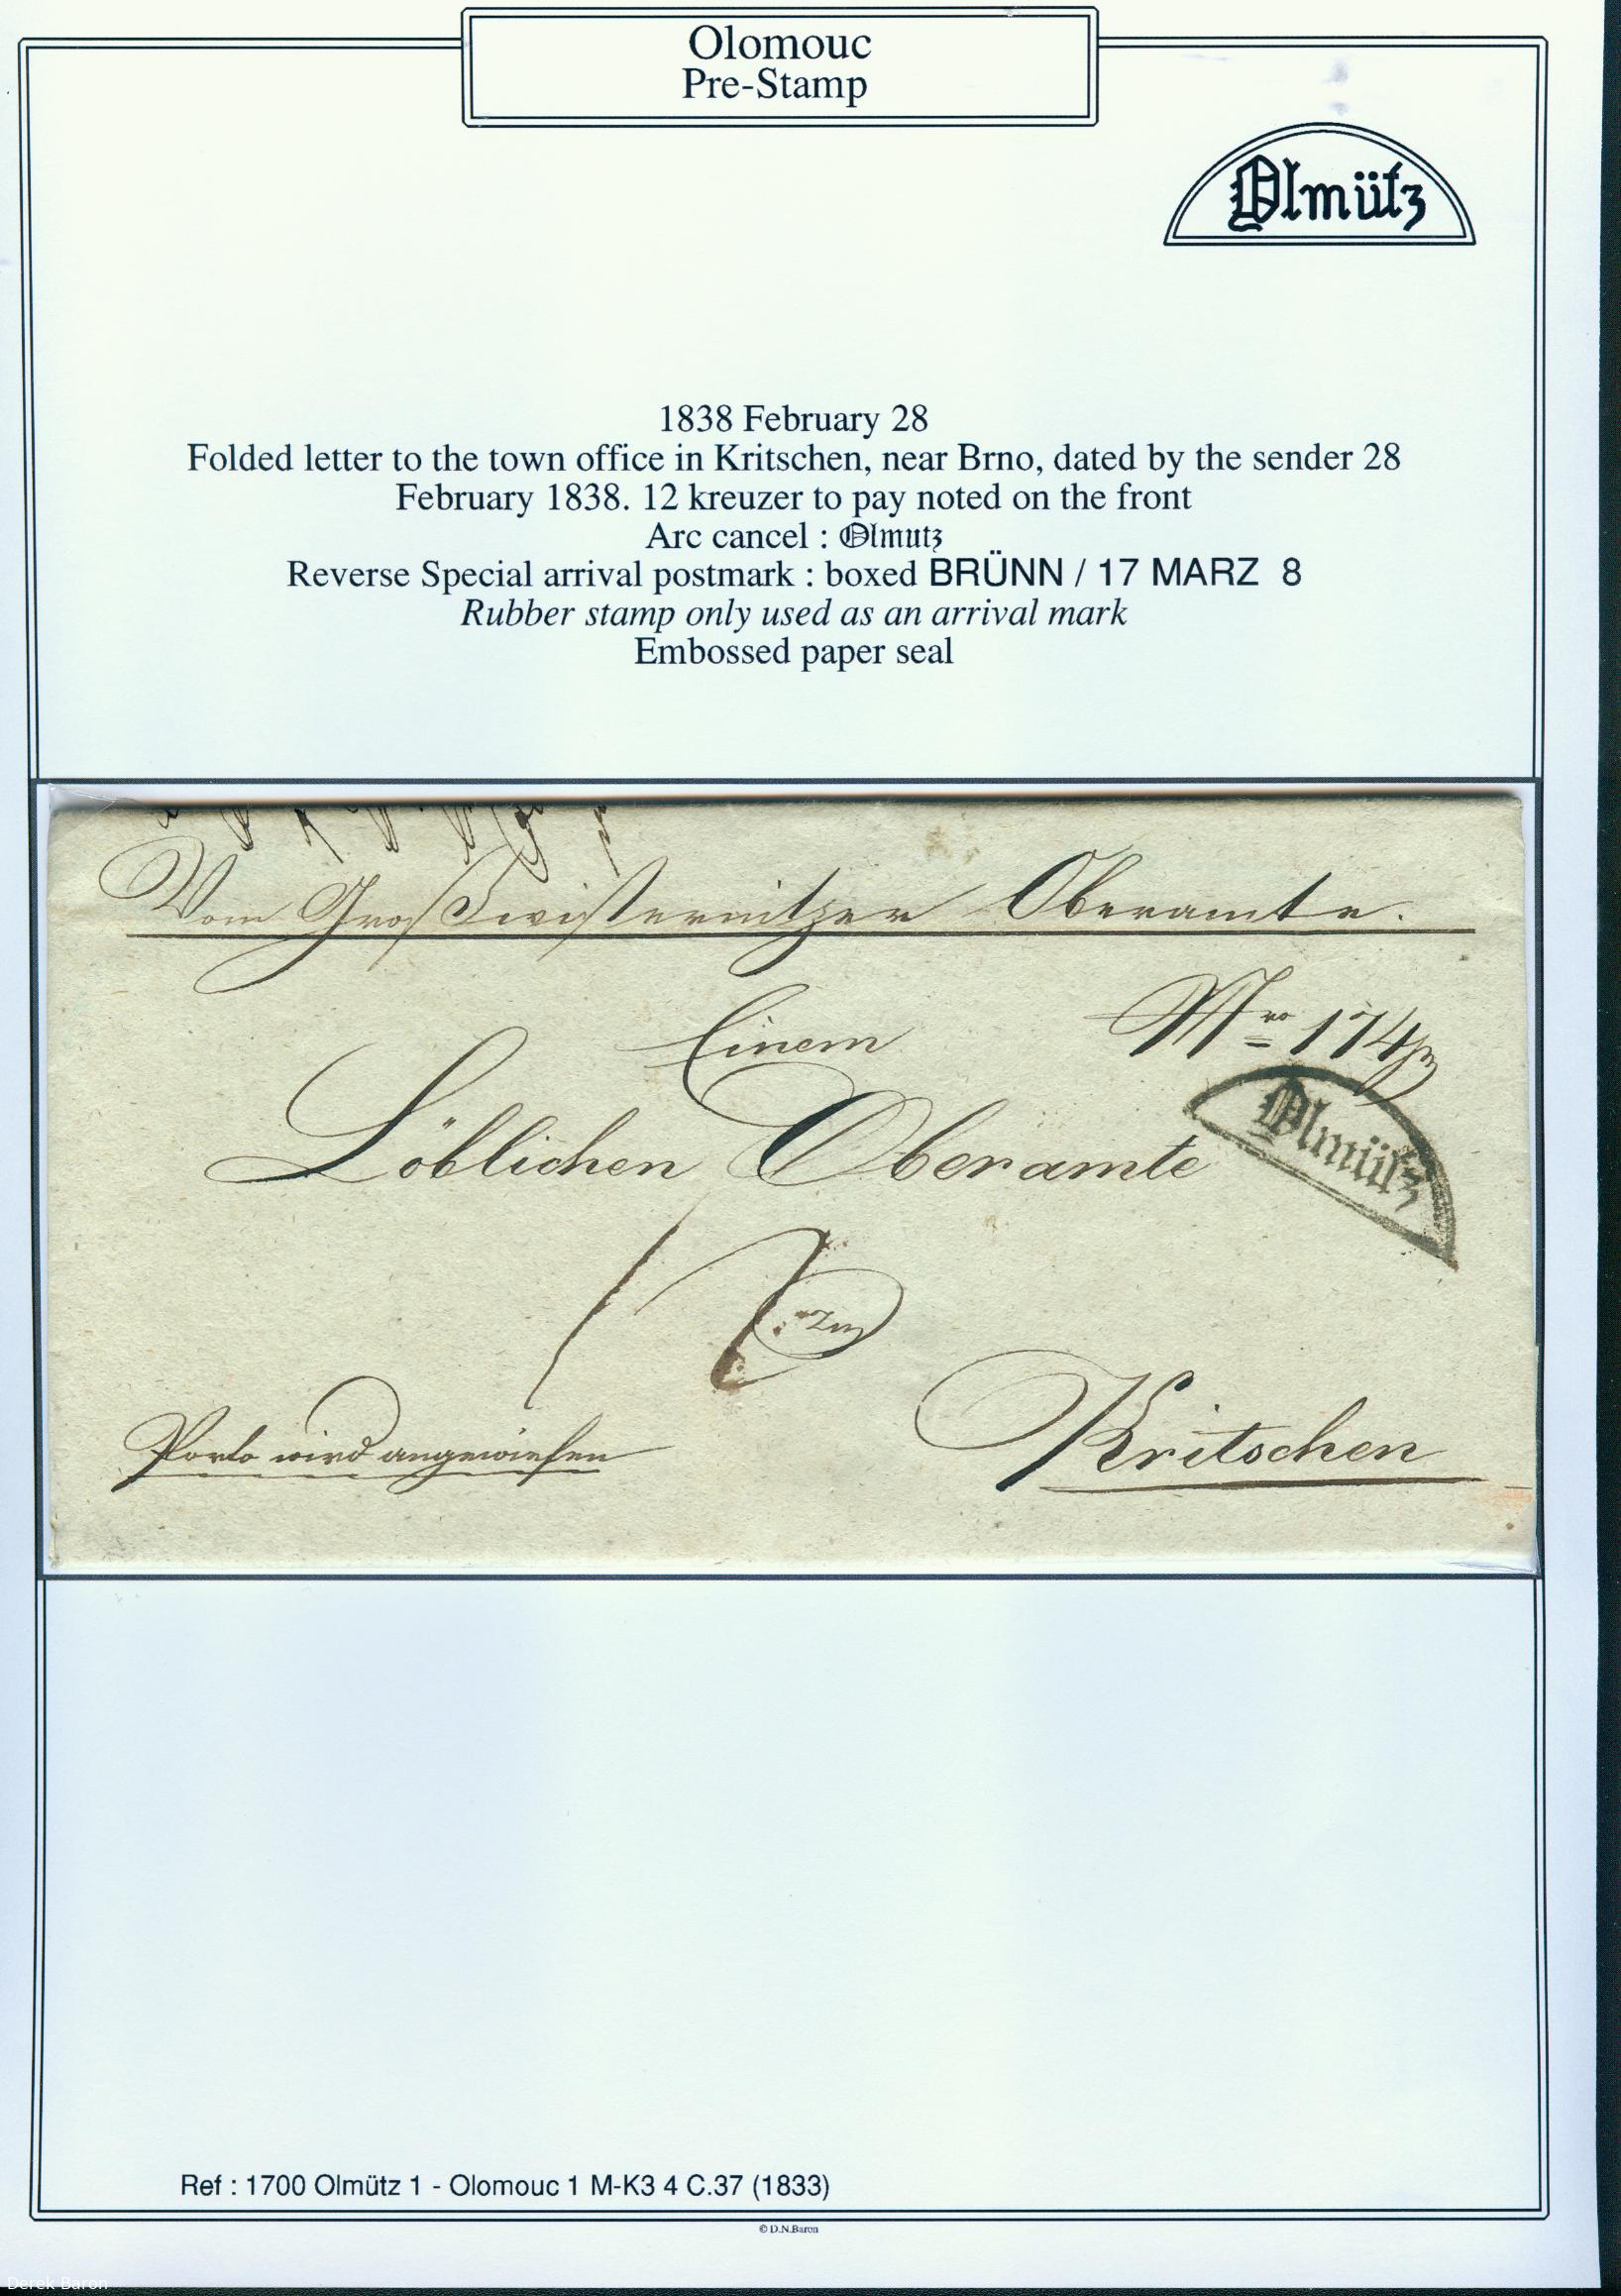 Olomouc
Pre-Stamp
Olmütz
1838 February 28
Folded letter to the town office in Kritschen, near Brno, dated by the sender 28
February 1838. 12 kreuzer to pay noted on the front
Arc cancel : Olmutz
Reverse Special arrival postmark : boxed BRÜNN / 17 MARZ 8
Rubber stamp only used as an arrival mark
Embossed paper seal
Vom Groß Twisternitzer Oberamte.
Einem
Nro 174
Löblichen Oberamte
Olmütz
12
Porto wird angewiesen
Kritschen
Ref : 1700 Olmütz 1 - Olomouc 1 M-K3 4 C.37 (1833)
© D.N.Baron
Derek Baron